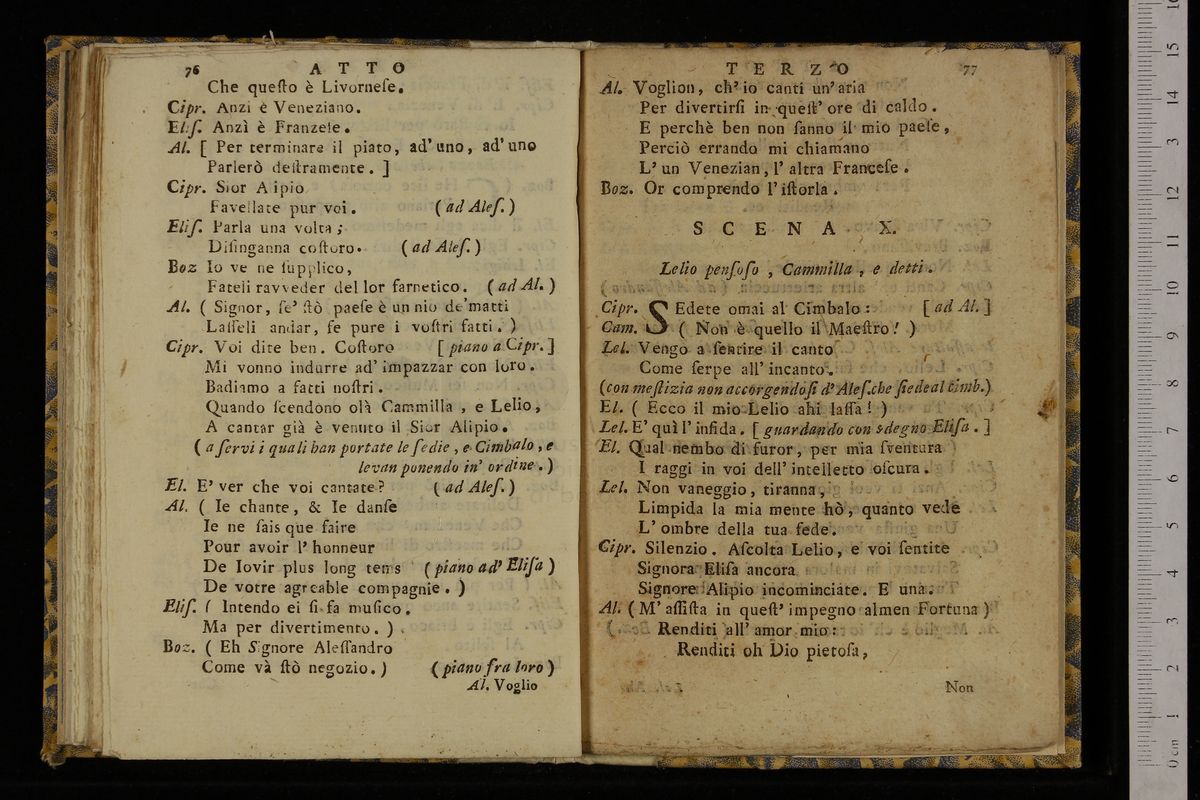 76 ATTO
Che queſto è Livorneſe.
Cipr. Anzi è Veneziano.
Eliſ. Anzì è Franzeſe.
Al. [ Per terminare il piato, ad' uno, ad' uno
Parlerò deſtramente. ]
Cipr. Sior A ipio
Favellate pur voi. ( ad Aleſ. )
Eliſ. Parla una volta ;
Diſinganna coſtoro. ( ad Aleſ. )
Boz Io ve ne ſupplico,
Fateli ravveder del lor farnetico. ( ad Al. )
Al. ( Signor, ſe' ſtò paeſe è un nio de'matti
Laſſeli andar, ſe pure i voſtri fatti. )
Cipr. Voi dite ben. Coſtoro [ piano a Cipr. ]
Mi vonno indurre ad' impazzar con loro.
Badiamo a fatti noſtri.
Quando ſcendono olà Cammilla , e Lelio,
A cantar già è venuto il Sior Alipio.
( a ſervi i quali han portate le ſedie , e Cimbalo , e
levan ponendo in' ordine . )
El. E' ver che voi cantate? ( ad Aleſ. )
Al. ( Ie chante, & Ie danſe
Ie ne ſais que faire
Pour avoir l' honneur
De Iovir plus long tems ( piano ad' Eliſa )
De votre agreable compagnie. )
Eliſ. ( Intendo ei ſi fa muſico.
Ma per divertimento. )
Boz. ( Eh Signore Aleſſandro
Come và ſtò negozio. ) ( piano fra loro )
Al. Voglio
TERZO 77
Al. Voglion, ch' io canti un' aria
Per divertirſi in queſt' ore di caldo.
E perchè ben non ſanno il mio paeſe,
Perciò errando mi chiamano
L' un Venezian, l' altra Franceſe.
Boz. Or comprendo l' iſtorla.
SCENA X.
Lelio penſoſo , Cammilla , e detti.
Cipr. SEdete omai al Cimbalo : [ ad Al. ]
Cam. ( Non è quello il Maeſtro! )
Lel. Vengo a ſentire il canto
Come ſerpe all' incanto.
(con meſtizia non accorgendoſi d' Aleſ.che ſiede al cimb.)
El. ( Ecco il mio Lelio ahi laſſa! )
Lel. E' quì l' infida. [ guardando con sdegno Eliſa. ]
El. Qual nembo di furor, per mia ſventura
I raggi in voi dell' intelletto oſcura.
Lel. Non vaneggio, tiranna,
Limpida la mia mente hò, quanto vede
L' ombre della tua fede.
Cipr. Silenzio. Aſcolta Lelio, e voi ſentite
Signora Eliſa ancora
Signore Alipio incominciate. E una.
Al. ( M' aſſiſta in queſt' impegno almen Fortuna )
( Renditi all' amor mio :
Renditi oh Dio pietoſa,
Non